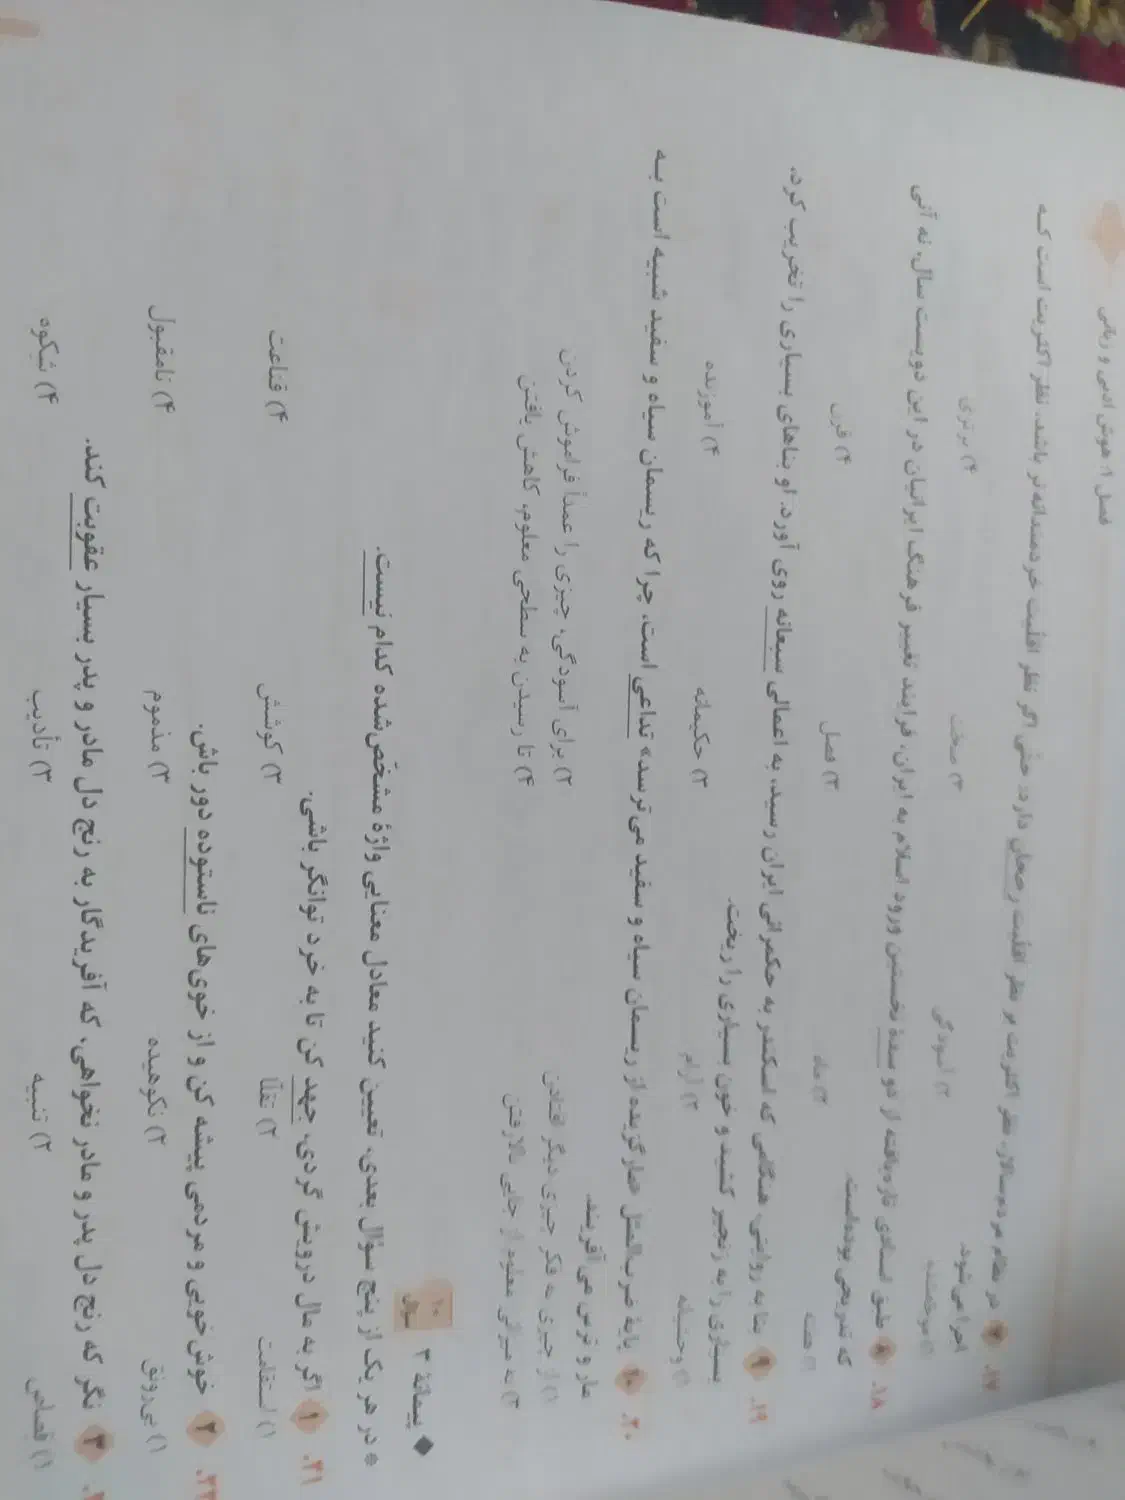 فصل ۱: هوش ادبی و زبانی
۱۷. ۷ در نظام مردم‌سالار، نظر اکثریت بر نظر اقلیت رجحان دارد؛ حتی اگر نظر اقلیت خردمندانه‌تر باشد، نظر اکثریت است که
اجرا می‌شود.
۲) آسودگی ۳) صحت ۴) برتری
۱۸. ۸ طبق اسنادی تازه‌یافته از دو سدهٔ نخستین ورود اسلام به ایران، فرایند تغییر فرهنگ ایرانیان در این دویست سال، نه آنی
که تدریجی بوده‌است.
۲) ماه ۳) فصل ۴) قرن
۱۹. ۹ بنا به روایتی، هنگامی که اسکندر به حکمرانی ایران رسید، به اعمالی سبعانه روی آورد. او بناهای بسیاری را تخریب کرد،
بسیاری را به زنجیر کشید و خون بسیاری را ریخت.
۱) وحشیانه ۲) آرام ۳) حکیمانه ۴) آموزنده
۲۰. ۱۰ پایهٔ ضرب‌المثل «مارگزیده از ریسمان سیاه و سفید می‌ترسد» تداعی است، چرا که ریسمان سیاه و سفید شبیه است به
مار و ترس می‌آفریند.
۱) از چیزی به فکر چیزی دیگر افتادن ۲) برای آسودگی، چیزی را عمداً فراموش کردن
۳) به میزانی معلوم از جایی بالا رفتن ۴) تا رسیدن به سطحی معلوم، کاهش یافتن
◆ پیمانهٔ ۳
۱۰ سؤال
* در هر یک از پنج سؤال بعدی، تعیین کنید معادل معنایی واژهٔ مشخص‌شده کدام نیست.
۲۱. ۱ اگر به مال درویش گردی، جهد کن تا به خرد توانگر باشی.
۱) استقامت ۲) تقلّا ۳) کوشش ۴) قناعت
۲۲. ۲ خوش‌خویی و مردمی پیشه کن و از خوی‌های ناستوده دور باش.
۱) بی‌رونق ۲) نکوهیده ۳) مذموم ۴) نامقبول
۳ نگر که رنج دل پدر و مادر نخواهی، که آفریدگار به رنج دل مادر و پدر بسیار عقوبت کند.
۱) قصاص ۲) تنبیه ۳) تأدیب ۴) شکوه